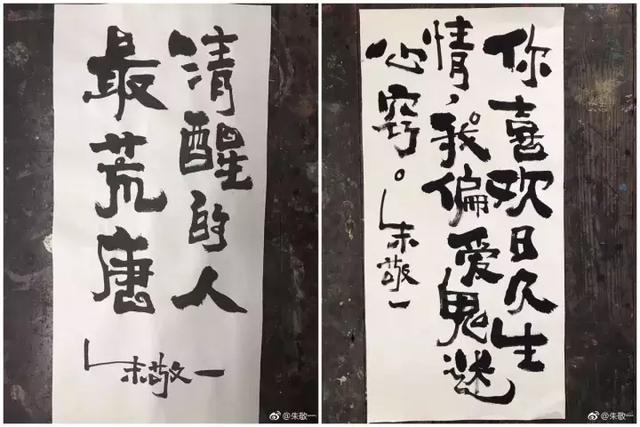 清醒的人
最荒唐
朱敬一
@朱敬一
你喜欢日久生
情，我偏爱鬼迷
心窍。
朱敬一
@朱敬一